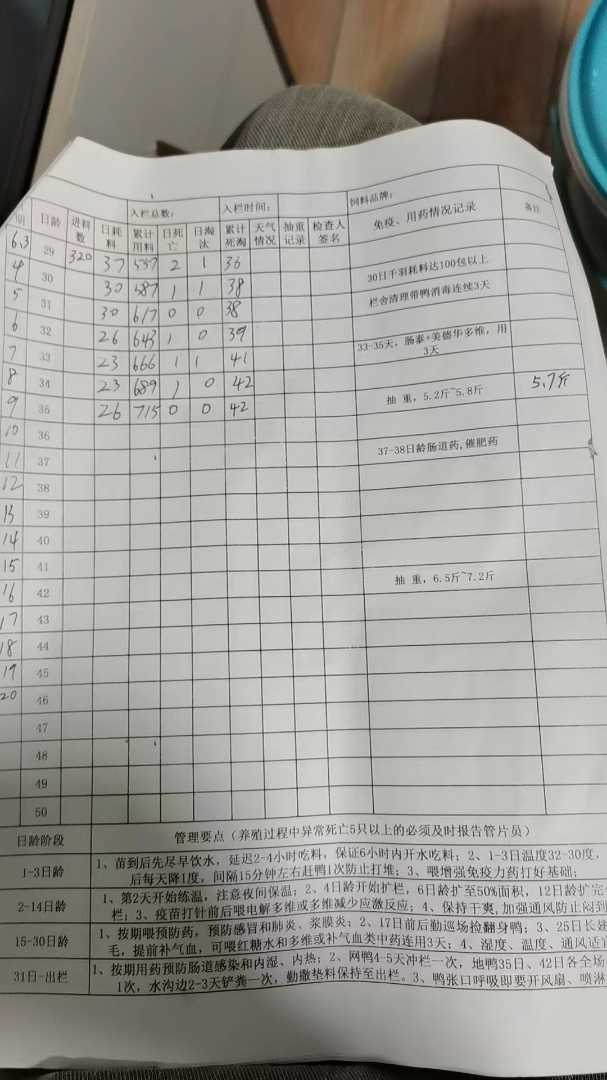 入栏总数： 入栏时间： 饲料品牌：
期 日龄 进料数 日耗料 累计用料 日死亡 日淘汰 累计死淘 天气情况 抽重记录 检查人签名 免疫、用药情况记录 备注
6.3 29 320 37 557 2 1 36
4 30 30 587 1 1 38 30日千羽耗料达100包以上
5 31 30 617 0 0 38 栏舍清理带鸭消毒连续3天
6 32 26 643 1 0 39
7 33 23 666 1 1 41 33-35天，肠泰+美德华多维，用3天
8 34 23 689 1 0 42
9 35 26 715 0 0 42 抽 重，5.2斤~5.8斤 5.7斤
10 36
11 37 37-38日龄肠道药,催肥药
12 38
13 39
14 40
15 41
16 42 抽 重，6.5斤~7.2斤
17 43
18 44
19 45
20 46
47
48
49
50
日龄阶段 管理要点（养殖过程中异常死亡5只以上的必须及时报告管片员）
1-3日龄 1、苗到后先尽早饮水，延迟2-4小时吃料，保证6小时内开水吃料；2、1-3日温度32-30度，
后每天降1度，间隔15分钟左右赶鸭1次防止打堆；3、喂增强免疫力药打好基础；
2-14日龄 1、第2天开始练温，注意夜间保温；2、4日龄开始扩栏，6日龄扩至50%面积，12日龄扩完
栏；3、疫苗打针前后喂电解多维或多维减少应激反应；4、保持干爽,加强通风防止闷到
15-30日龄 1、按期喂预防药，预防感冒和肺炎、浆膜炎；2、17日前后勤巡场捡翻身鸭；3、25日长
毛，提前补气血，可喂红糖水和多维或补气血类中药连用3天；4、湿度、温度、通风适
31日-出栏 1、按期用药预防肠道感染和内湿、内热；2、网鸭4-5天冲栏一次，地鸭35日、42日各全场
1次，水沟边2-3天铲粪一次，勤撒垫料保持至出栏。3、鸭张口呼吸即要开风扇、喷淋